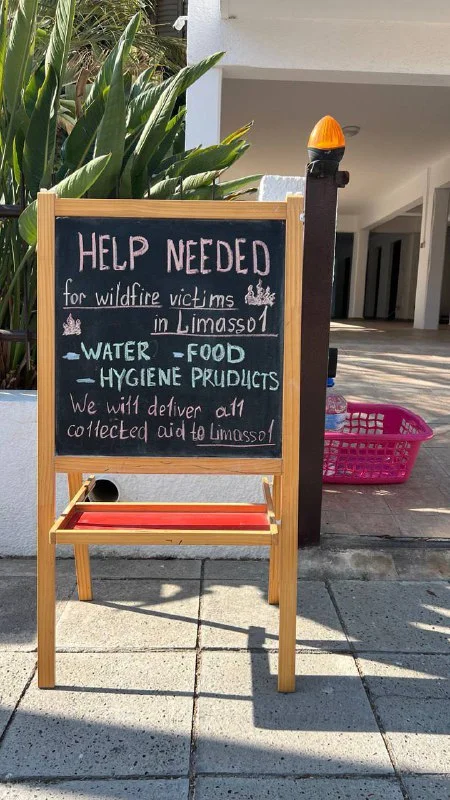 HELP NEEDED
for wildfire victims
in Limassol
- WATER - FOOD
- HYGIENE PRUDUCTS
We will deliver all
collected aid to Limassol